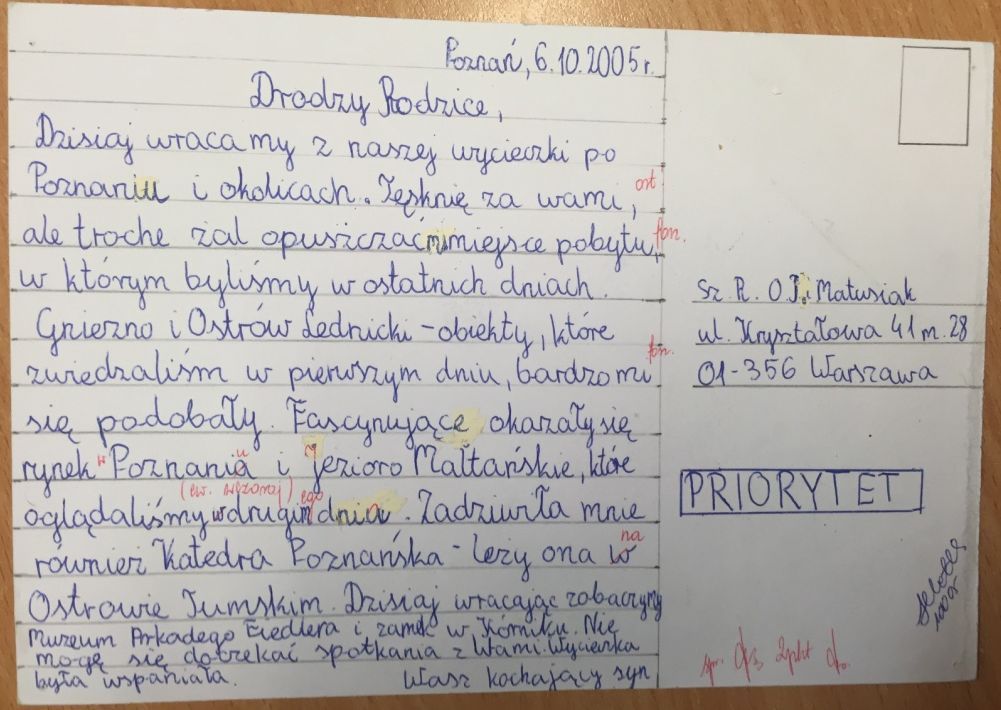 Poznań, 6.10.2005r.
Drodzy Rodzice,
Dzisiaj wracamy z naszej wycieczki po
Poznaniu i okolicach. Tęsknię za wami,
ort
ale troche żal opuszczać miejsce pobytu,
fon.
w którym byliśmy w ostatnich dniach.
Gniezno i Ostrów Lednicki - obiekty, które
fon.
zwiedzaliśm w pierwszym dniu, bardzo mi
się podobały. Fascynujące okazały się
rynek w Poznania i jezioro Maltańskie, które
u
(ew. wczoraj) ego
oglądaliśmy w drugim dnia. Zadziwiła mnie
również Katedra Poznańska - leży ona w
na
Ostrowie Tumskim. Dzisiaj wracając zobaczymy
Muzeum Arkadego Fiedlera i zamek w Kórniku. Nie
mogę się dotrekać spotkania z Wami. Wycieczka
była wspaniała. Wasz kochający syn
Sz. P. O.J. Matusiak
ul. Kryształowa 41 m. 28
01-356 Warszawa
PRIORYTET
2pkt